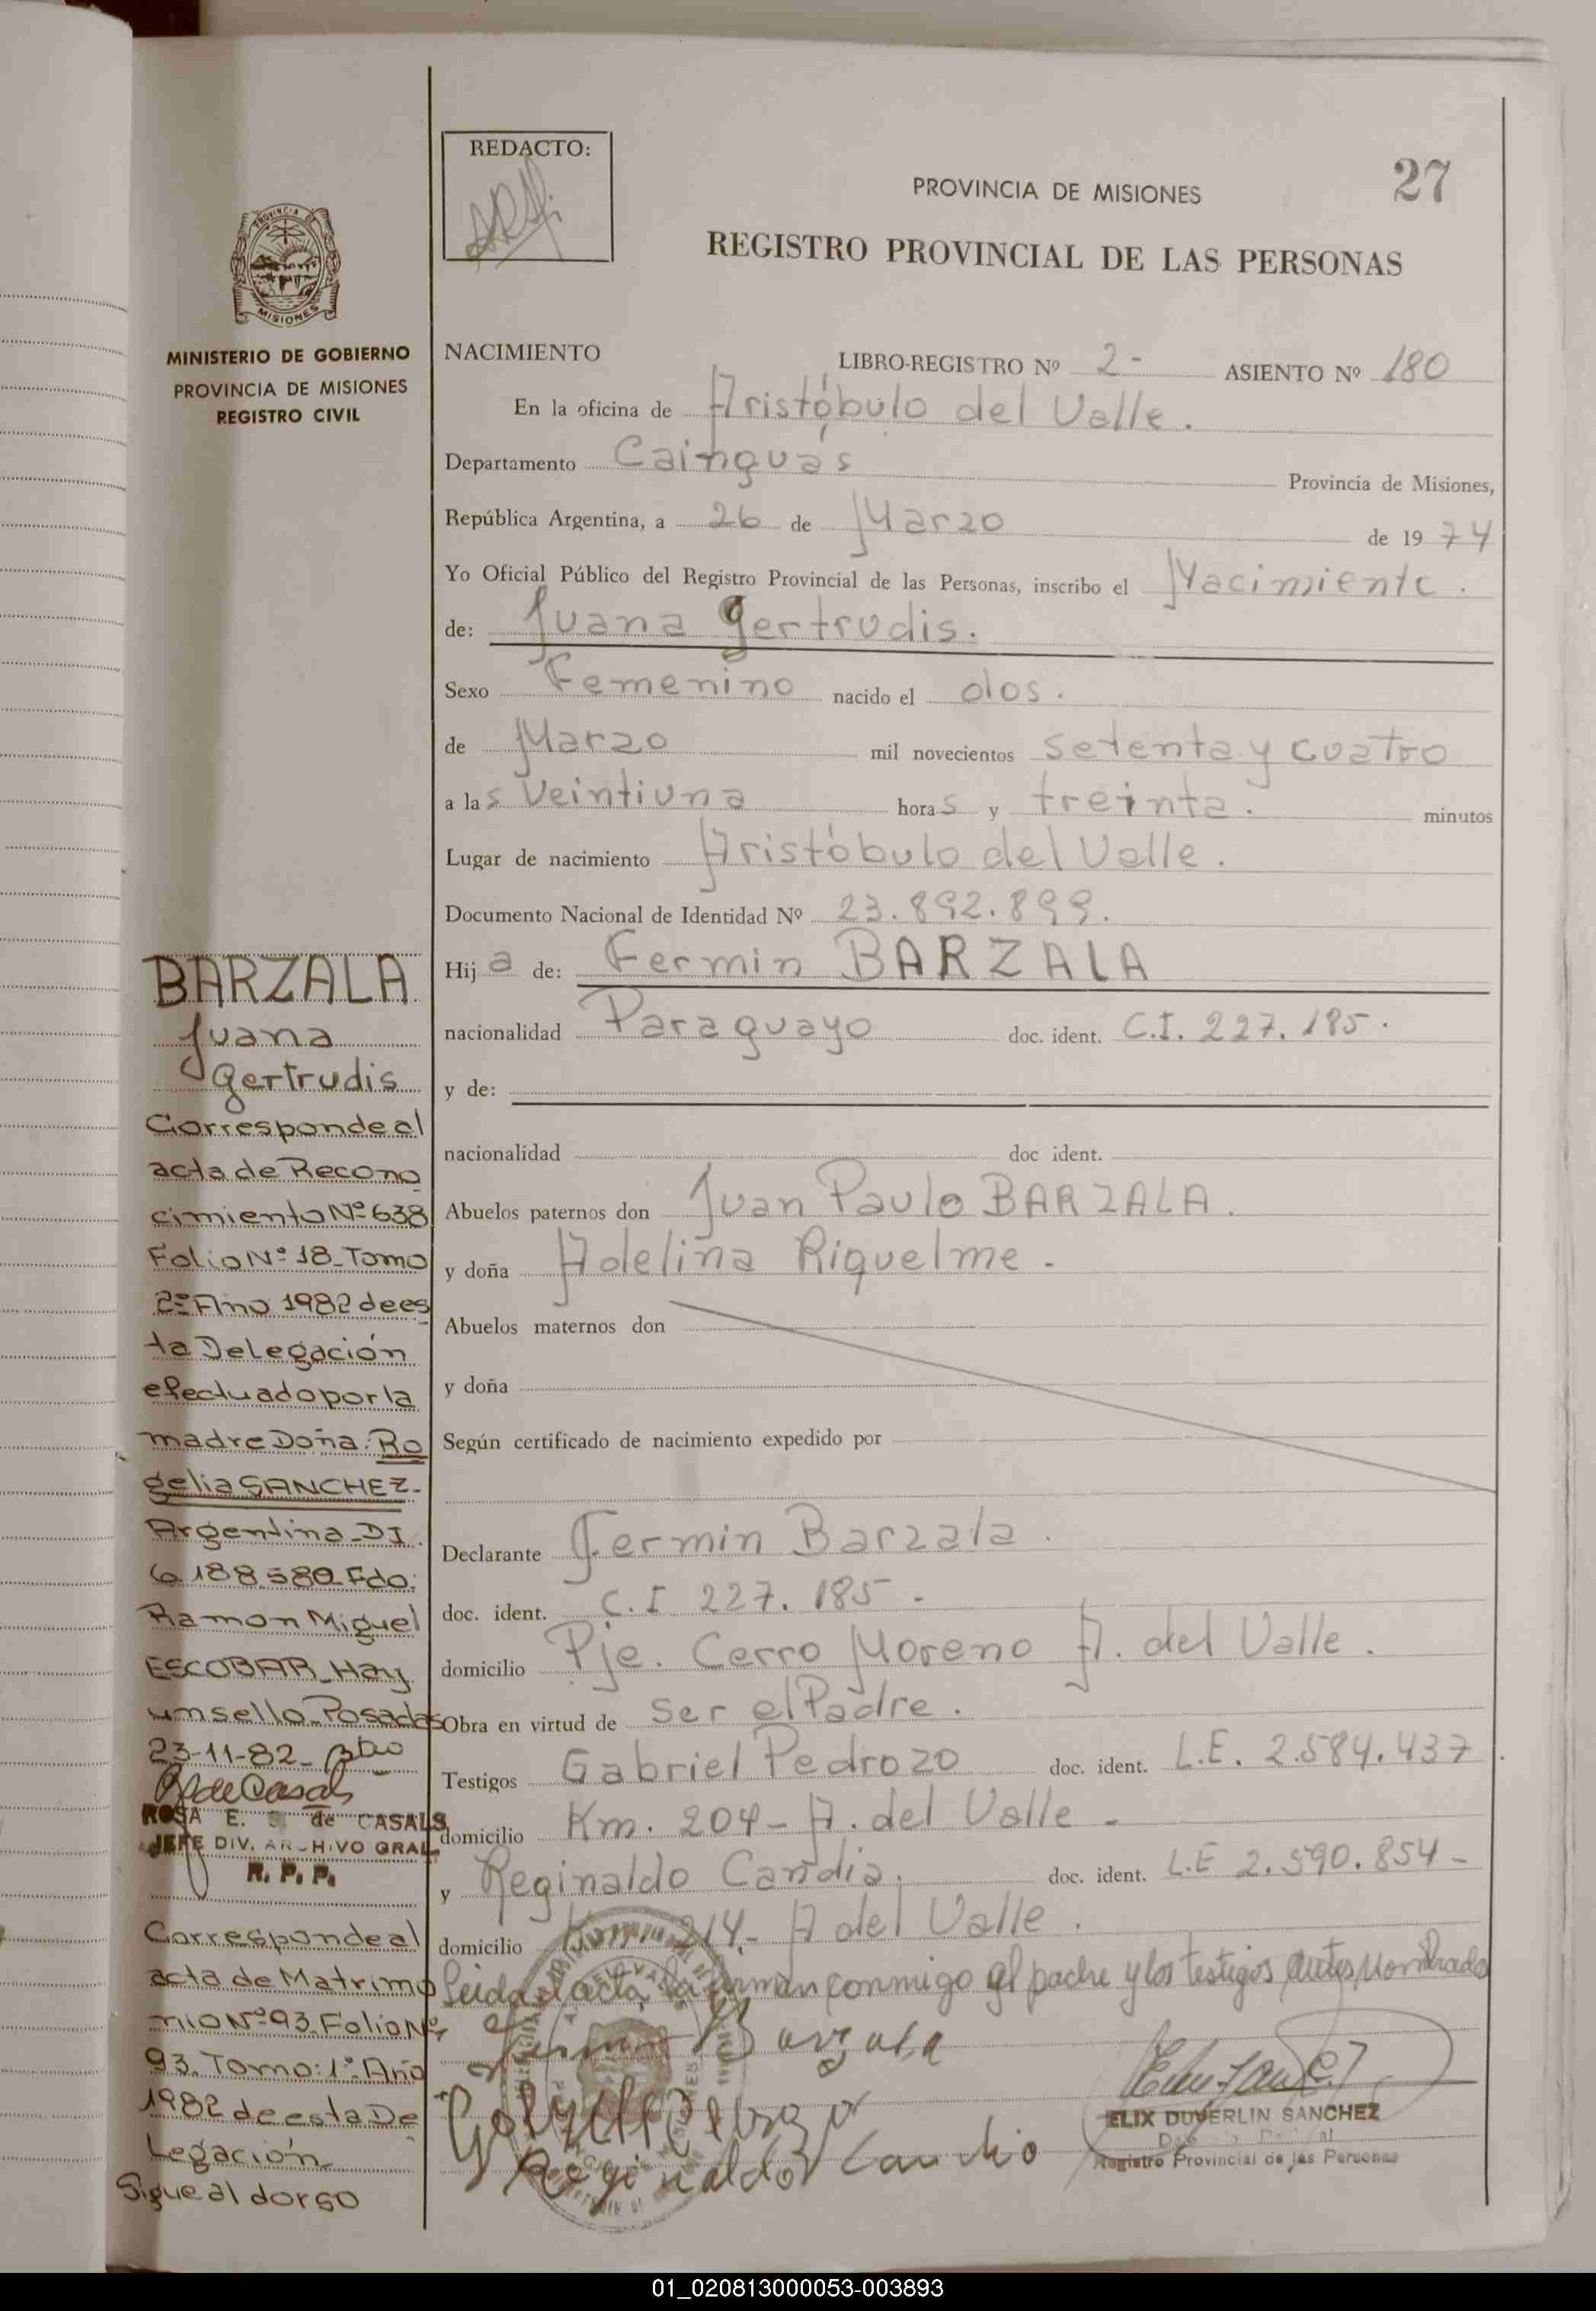 27
REDACTO:
PROVINCIA DE MISIONES
REGISTRO PROVINCIAL DE LAS PERSONAS
PROVINCIA DE
MISIONES
MINISTERIO DE GOBIERNO
PROVINCIA DE MISIONES
REGISTRO CIVIL
NACIMIENTO LIBRO-REGISTRO Nº 2- ASIENTO Nº 180
En la oficina de Aristóbulo del Valle.
Departamento Cainguás Provincia de Misiones,
República Argentina, a 26 de Marzo de 1974
Yo Oficial Público del Registro Provincial de las Personas, inscribo el Nacimiento.
de: Juana Gertrudis.
Sexo Femenino nacido el dos.
de Marzo mil novecientos setenta y cuatro
a las Veintiuna horas y treinta. minutos
Lugar de nacimiento Aristóbulo del Valle.
Documento Nacional de Identidad Nº 23.892.899.
Hija de: Fermin BARZALA
nacionalidad Paraguayo doc. ident. C.I. 227.185.
y de:
nacionalidad doc ident.
Abuelos paternos don Juan Paulo BARZALA.
y doña Adelina Riquelme -
Abuelos maternos don
y doña
Según certificado de nacimiento expedido por
Declarante Fermin Barzala.
doc. ident. C.I 227.185 -
domicilio Pje. Cerro Moreno A. del Valle.
Obra en virtud de ser el Padre.
Testigos Gabriel Pedrozo doc. ident. L.E. 2.584.437
domicilio Km. 204- A. del Valle -
y Reginaldo Candia. doc. ident. L.E 2.590.854-
domicilio Km. 214.- A del Valle.
Leida el acta, la firman conmigo el padre y los testigos antes nombrados
Fermin Barzala
Gabriel Pedrozo
Reginaldo Candia
ELIX DUVERLIN SANCHEZ
Registro Provincial de las Personas
BARZALA
Juana
Gertrudis
Corresponde al
acta de Recono
cimiento Nº 638
Folio Nº 18_Tomo
2º Año 1982 de es
ta Delegación
efectuado por la
madre Doña: Ro
gelia SANCHEZ-
Argentina_DI.
6.188.580_Fdo:
Ramon Miguel
ESCOBAR_Hay
un sello_Posadas
23-11-82_
R de Casals
ROSA E. de CASALS
JEFE DIV. ARCHIVO GRAL.
R. P. P.
Corresponde al
acta de Matrimo
nio Nº 93_Folio Nº
93_Tomo: 1º_Año
1982 de esta De
legación_
Sigue al dorso
01_020813000053-003893